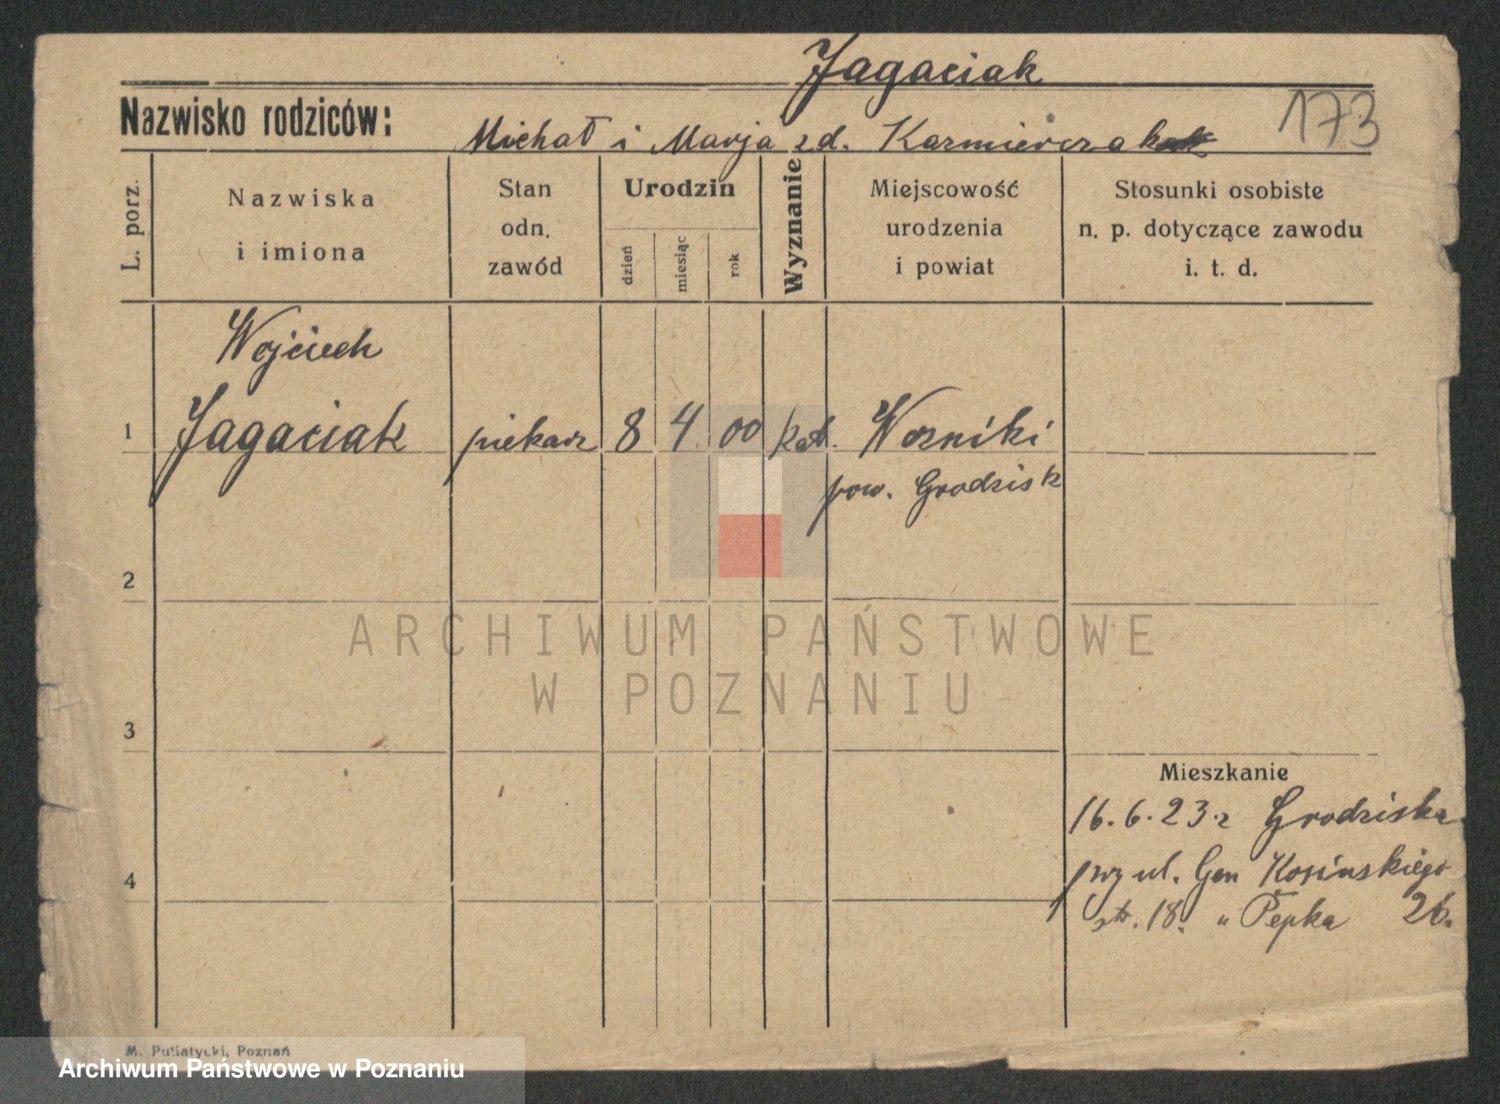 Jagaciak
173
Nazwisko rodziców:
Michał i Marja zd. Kazmierczak
L. porz.
Nazwiska
i imiona
Stan
odn.
zawód
Urodzin
dzień
miesiąc
rok
Wyznanie
Miejscowość
urodzenia
i powiat
Stosunki osobiste
n. p. dotyczące zawodu
i. t. d.
Wojciech
1 Jagaciak piekarz 8 4 00 kat. Wozniki
pow. Grodzisk
2
ARCHIWUM PAŃSTWOWE
W POZNANIU
3
Mieszkanie
16.6.23. z Grodziska
4
przy ul. Gen Kosińskiego
18. " 26.
M. Putiatycki, Poznań
Archiwum Państwowe w Poznaniu